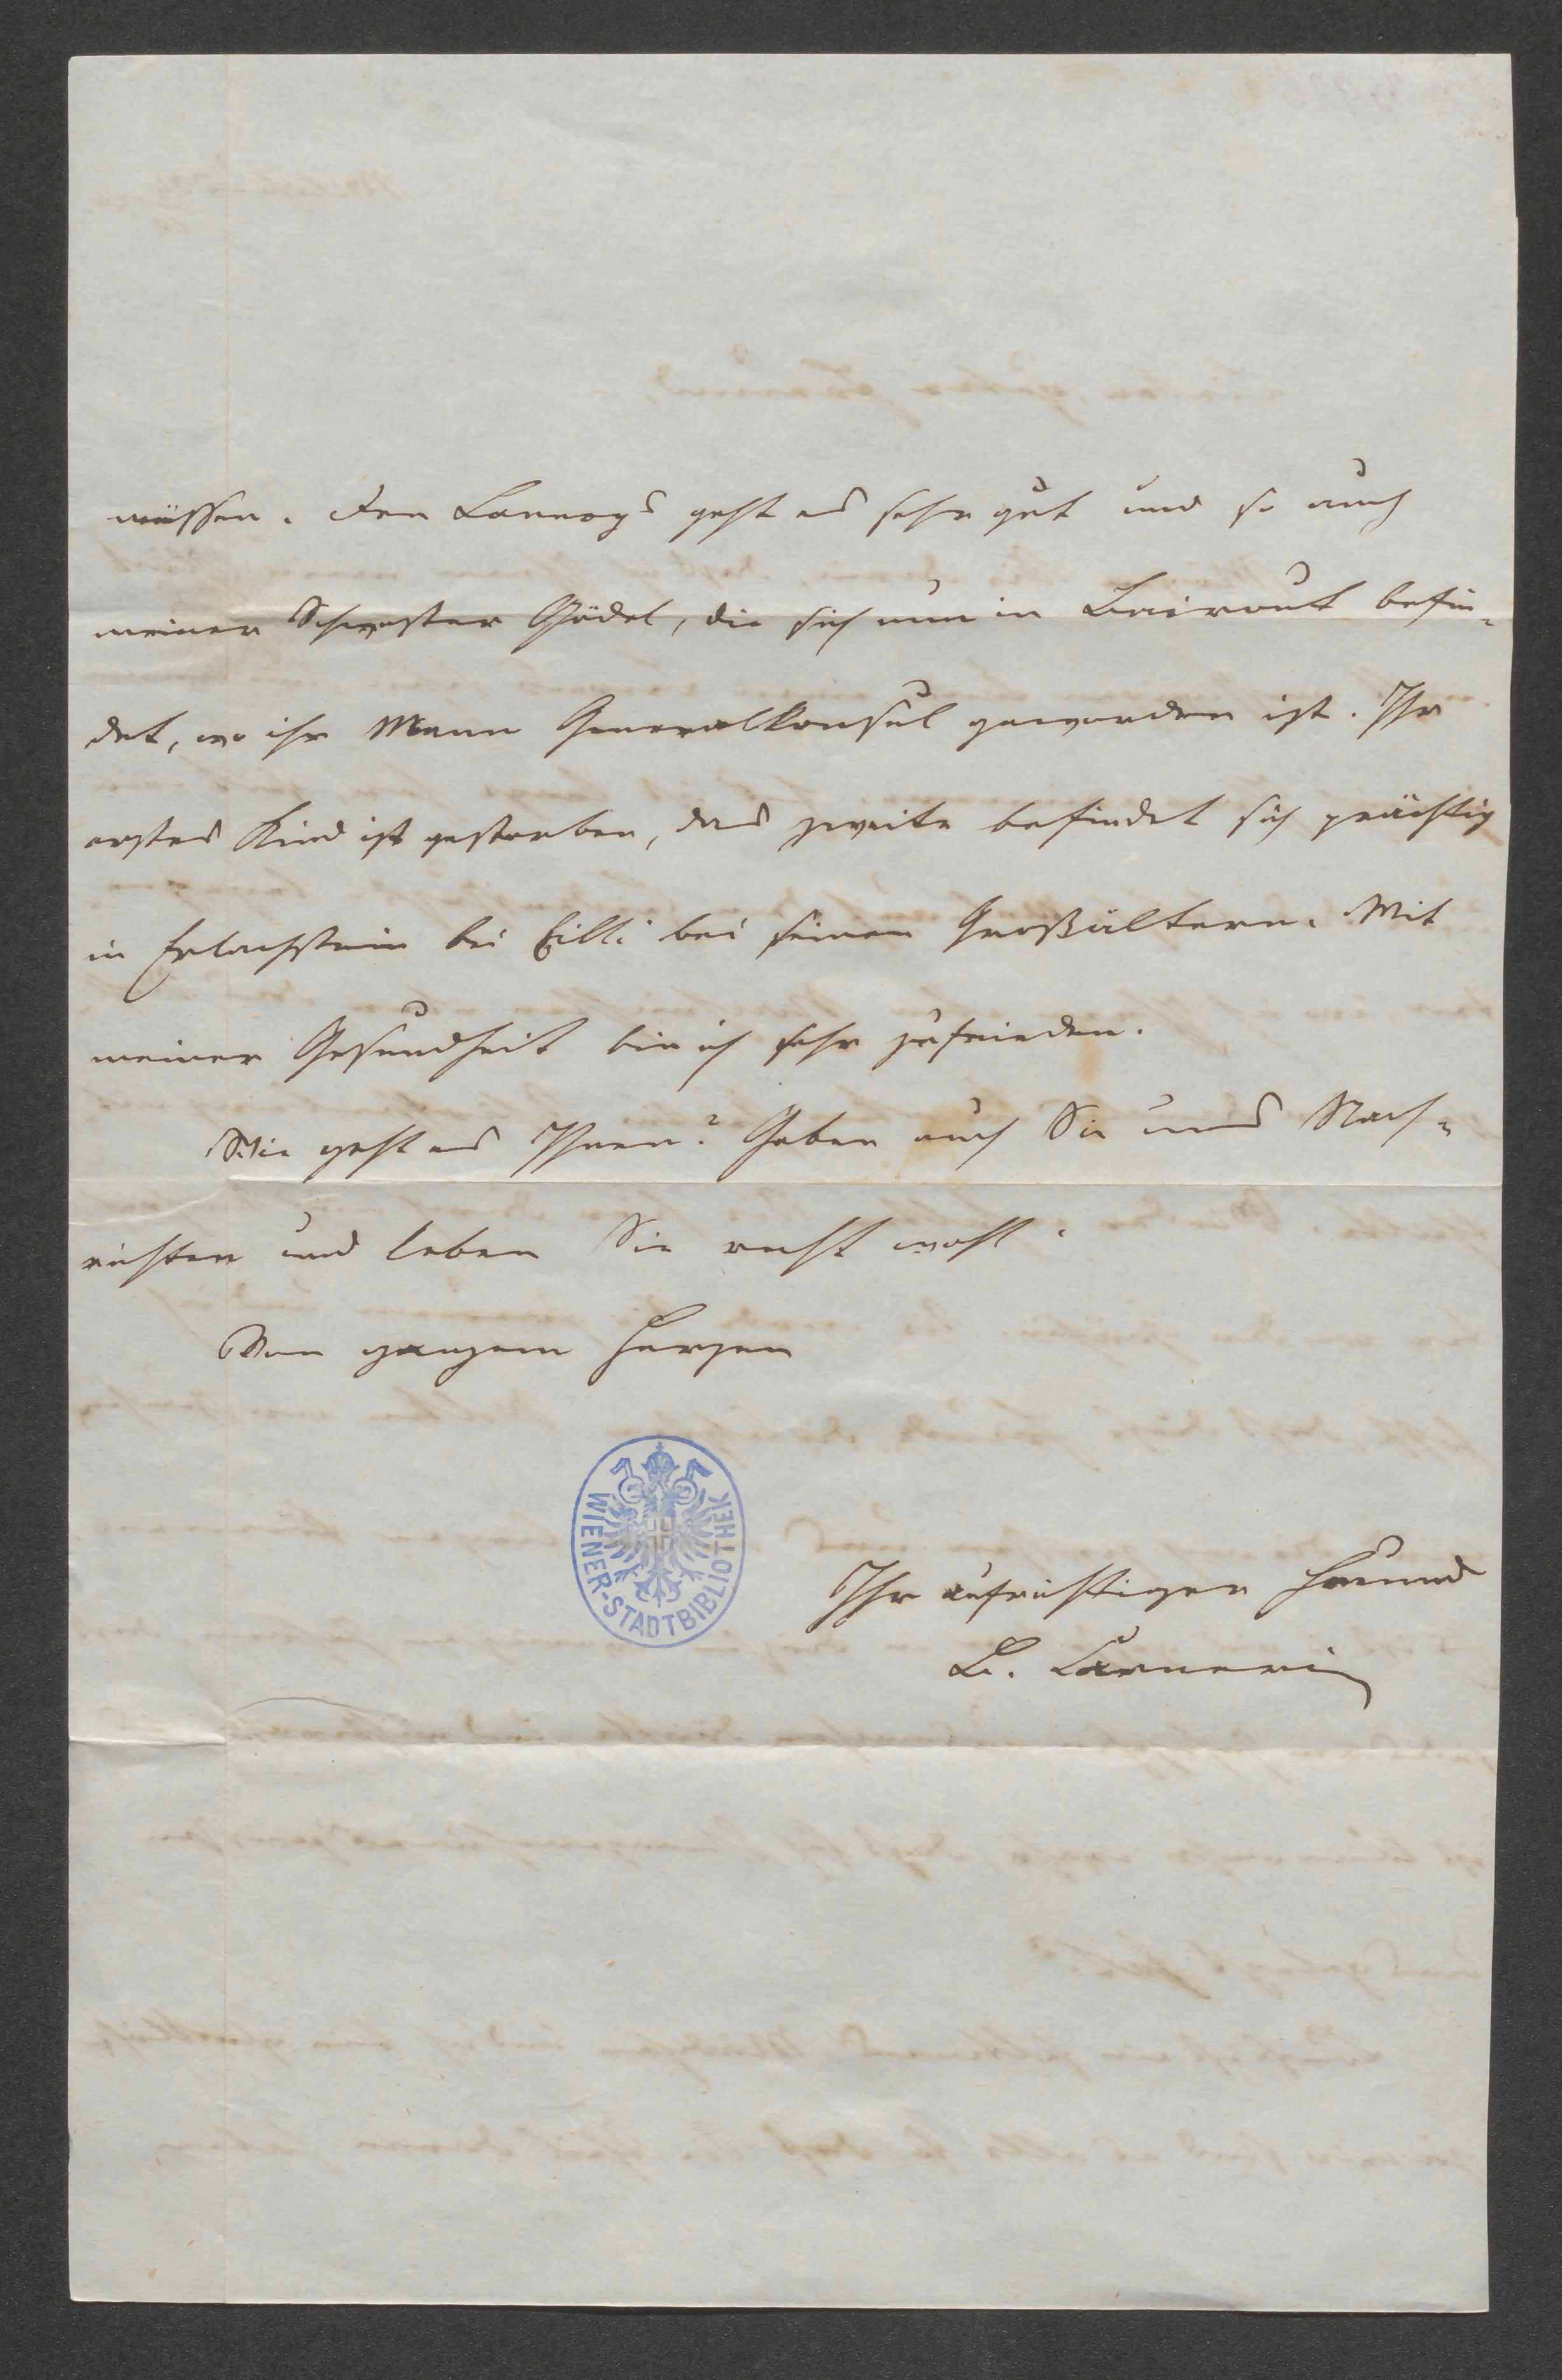 müssen. Den Lannoys geht es sehr gut und so auch
meiner Schwester Gödel, die sich nun in Bairout befin-
det, wo ihr Mann Generalkonsul geworden ist. Ihr
erstes Kind ist gestorben, das zweite befindet sich prächtig
in Erlachstein bei Cilli bei seinen Großältern. Mit
meiner Gesundheit bin ich sehr zufrieden.
Wie geht es Ihnen? Geben auch Sie uns Nach-
richten und leben Sie recht wohl.
Von ganzem Herzen
WIENER-STADTBIBLIOTHEK
Ihr aufrichtiger Freund
B. Carneri